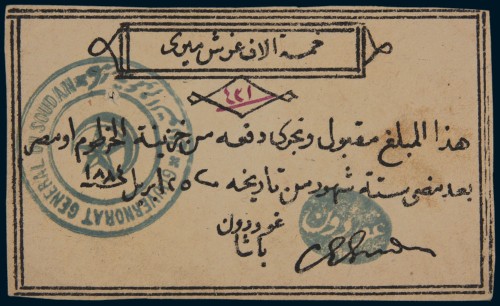 خمسة آلاف غرش ميرى
٤٢١
هذا المبلغ مقبول ويجرى دفعه من خزينة الخرطوم او مصر
بعد مضى ستة شهور من تاريخه ٢٥ ابريل ١٨٨٤
غوردون
باشا
GOUVERNORAT GENERAL DU SOUDAN